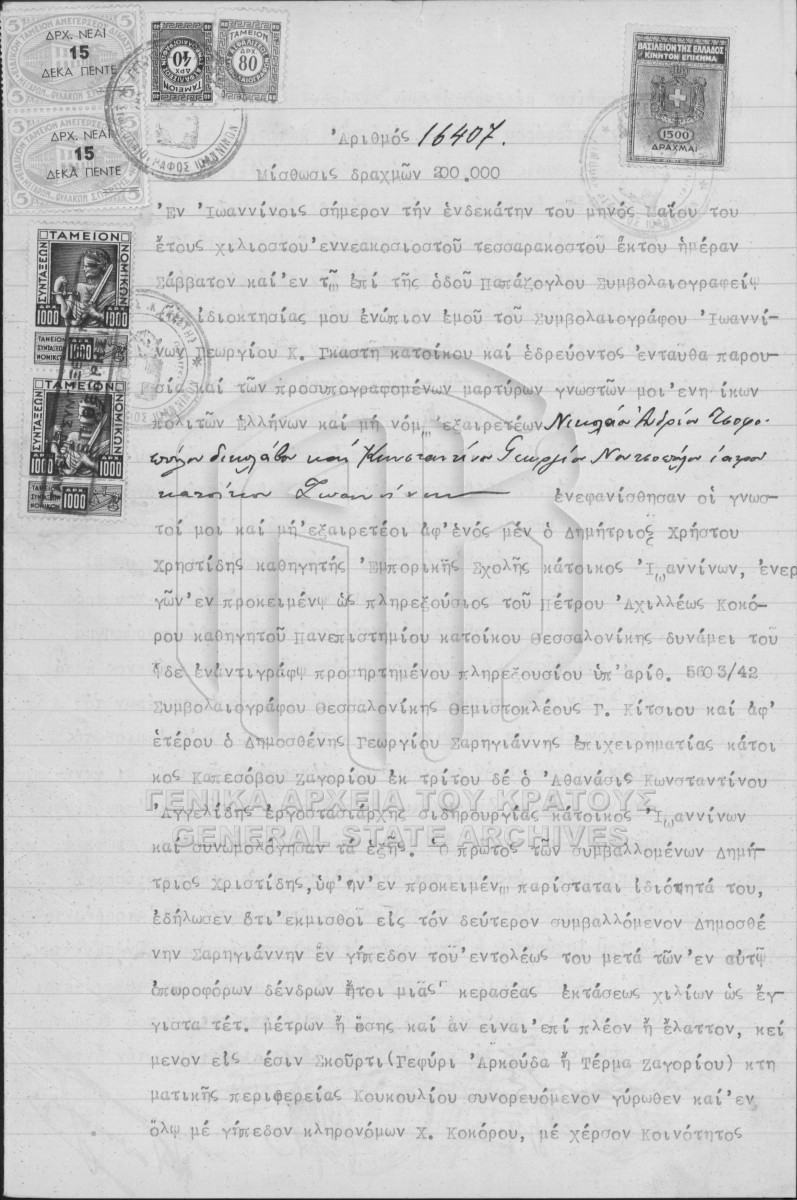 Ἀριθμός 16407.
Μίσθωσις δραχμῶν 200.000
Ἐν Ἰωαννίνοις σήμερον τήν ἑνδεκάτην του μηνός Μαΐου του
ἔτους χιλιοστοῦ ἐννεακοσιοστοῦ τεσσαρακοστοῦ ἕκτου ἡμέραν
Σάββατον καί ἐν τῶ ἐπί τῆς ὁδοῦ Παπάζογλου Συμβολαιογραφείῳ
ἰδιοκτησίας μου ἐνώπιον ἐμοῦ τοῦ Συμβολαιογράφου Ἰωαννί-
νων Γεωργίου Κ. Γκαστῆ κατοίκου καί ἑδρεύοντος ἐνταυθα παρου-
σίᾳ καί τῶν προσυπογραφομένων μαρτύρων γνωστῶν μοι ἐνηλίκων
πολιτῶν Ἑλλήνων καί μή νόμῳ ἐξαιρετέων Νικολάου
καί Κωνσταντίνου Γεωργίου ἰατρου
κατοίκων Ἰωαννίνων ἐνεφανίσθησαν οἱ γνωσ-
τοί μοι καί μή ἐξαιρετέοι ἀφ' ἑνός μέν ὁ Δημήτριος Χρήστου
Χρηστίδης καθηγητής Ἐμπορικῆς Σχολῆς κάτοικος Ἰωαννίνων, ἐνερ
γῶν ἐν προκειμένῳ ὡς πληρεξούσιος τοῦ Πέτρου Ἀχιλλέως Κοκό-
ρου καθηγητοῦ Πανεπιστημίου κατοίκου Θεσσαλονίκης δυνάμει τοῦ
ὧδε ἐν ἀντιγράφῳ προσηρτημένου πληρεξουσίου ὑπ' ἀρίθ. 5603/42
Συμβολαιογράφου Θεσσαλονίκης Θεμιστοκλέους Γ. Κίτσιου καί ἀφ'
ἑτέρου ὁ Δημοσθένης Γεωργίου Σαρηγιάννης ἐπιχειρηματίας κάτοι
κος Καπεσόβου Ζαγορίου ἐκ τρίτου δέ ὁ Ἀθανάσις Κωνσταντίνου
Ἀγγελίδης ἐργοστασιάρχης σιδηρουργίας κάτοικος Ἰωαννίνων
καί συνωμολόγησαν τά ἑξῆς. Ὁ πρῶτος τῶν συμβαλλομένων Δημή-
τριος Χριστίδης, ὑφ' ἥν ἐν προκειμένω παρίσταται ἰδιότητά του,
ἐδήλωσεν ὅτι ἐκμισθοῖ εἰς τόν δεύτερον συμβαλλόμενον Δημοσθέ
νην Σαρηγιάννην ἕν γήπεδον τοῦ ἐντολέως του μετά τῶν ἐν αὐτῷ
ὀπωροφόρων δένδρων ἤτοι μιᾶς κερασέας ἐκτάσεως χιλίων ὡς ἔγ
γιστα τέτ. μέτρων ἤ ὅσης καί ἄν εἶναι ἐπί πλέον ἤ ἔλαττον, κεί
μενον εἰς θέσιν Σκοῦρτι(Γεφύρι Ἀρκούδα ἤ Τέρμα Ζαγορίου) κτη
ματικῆς περιφερείας Κουκουλίου συνορευόμενον γύρωθεν καί ἐν
ὅλῳ μέ γήπεδον κληρονόμων Χ. Κοκόρου, μέ χέρσον Κοινότητος
ΔΡΧ. ΝΕΑΙ
15
ΔΕΚΑ ΠΕΝΤΕ
ΔΡΧ. ΝΕΑΙ
15
ΔΕΚΑ ΠΕΝΤΕ
40
ΤΑΜΕΙΟΝ
ΔΡΧ
80
ΒΑΣΙΛΕΙΟΝ ΤΗΣ ΕΛΛΑΔΟΣ
ΚΙΝΗΤΟΝ ΕΠΙΣΗΜΑ
1500
ΔΡΑΧΜΑΙ
ΤΑΜΕΙΟΝ
ΣΥΝΤΑΞΕΩΝ
ΝΟΜΙΚΩΝ
1000
1000
ΤΑΜΕΙΟΝ
ΣΥΝΤΑΞΕΩΝ
ΝΟΜΙΚΩΝ
1000
ΤΑΜΕΙΟΝ
ΣΥΝΤΑΞΕΩΝ
ΝΟΜΙΚΩΝ
1000
1000
ΤΑΜΕΙΟΝ
ΣΥΝΤΑΞΕΩΝ
ΝΟΜΙΚΩΝ
1000
ΓΕΝΙΚΑ ΑΡΧΕΙΑ ΤΟΥ ΚΡΑΤΟΥΣ
GENERAL STATE ARCHIVES